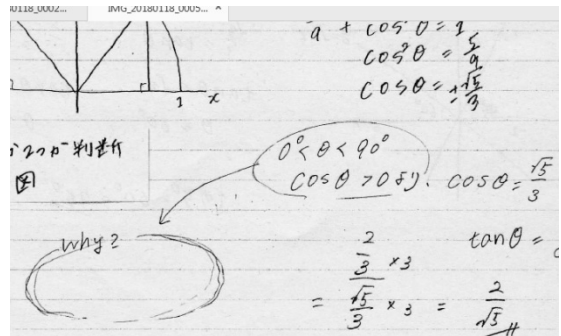 0118_0002...
IMG_20180118_0005...
x
1
x
+ cos²θ = 1
cos²θ = 5/9
cos θ = ±√5/3
2つか 判断
図
0° < θ < 90°
cos θ > 0 より. cos θ = √5/3
Why?
tan θ =
= (2/3 ×3)/(√5/3 ×3) = 2/√5